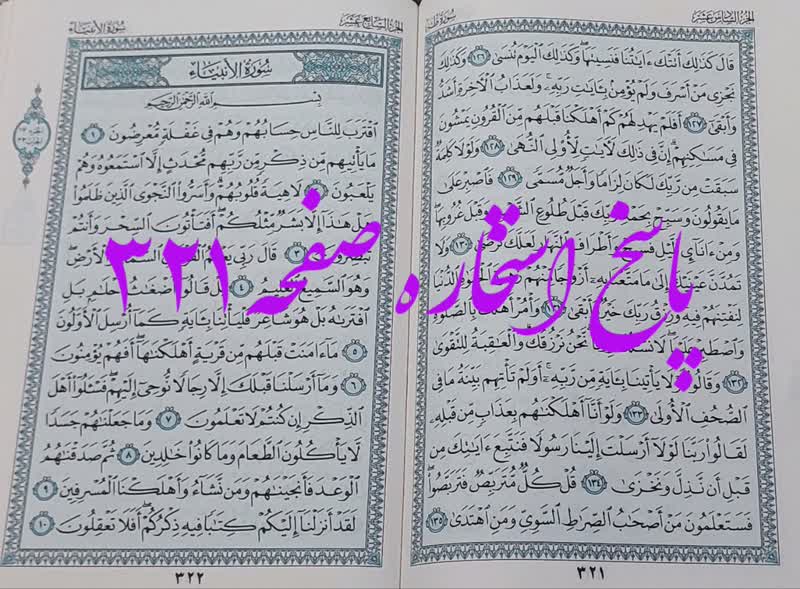 سُورَةُ طه
الجُزْءُ السَّادِسَ عَشَرَ
قَالَ كَذَٰلِكَ أَتَتْكَ ءَايَٰتُنَا فَنَسِيتَهَاۖ وَكَذَٰلِكَ ٱلْيَوْمَ تُنسَىٰ ١٢٦ وَكَذَٰلِكَ
نَجْزِى مَنْ أَسْرَفَ وَلَمْ يُؤْمِنۢ بِـَٔايَٰتِ رَبِّهِۦۚ وَلَعَذَابُ ٱلْـَٔاخِرَةِ أَشَدُّ
وَأَبْقَىٰٓ ١٢٧ أَفَلَمْ يَهْدِ لَهُمْ كَمْ أَهْلَكْنَا قَبْلَهُم مِّنَ ٱلْقُرُونِ يَمْشُونَ
فِى مَسَٰكِنِهِمْۗ إِنَّ فِى ذَٰلِكَ لَـَٔايَٰتٍ لِّأُو۟لِى ٱلنُّهَىٰ ١٢٨ وَلَوْلَا كَلِمَةٌ
سَبَقَتْ مِن رَّبِّكَ لَكَانَ لِزَامًا وَأَجَلٌ مُّسَمًّى ١٢٩ فَٱصْبِرْ عَلَىٰ
مَا يَقُولُونَ وَسَبِّحْ بِحَمْدِ رَبِّكَ قَبْلَ طُلُوعِ ٱلشَّمْسِ وَقَبْلَ غُرُوبِهَاۖ
وَمِنْ ءَانَآئِ ٱلَّيْلِ فَسَبِّحْ وَأَطْرَافَ ٱلنَّهَارِ لَعَلَّكَ تَرْضَىٰ ١٣٠ وَلَا
تَمُدَّنَّ عَيْنَيْكَ إِلَىٰ مَا مَتَّعْنَا بِهِۦٓ أَزْوَٰجًا مِّنْهُمْ زَهْرَةَ ٱلْحَيَوٰةِ ٱلدُّنْيَا
لِنَفْتِنَهُمْ فِيهِۚ وَرِزْقُ رَبِّكَ خَيْرٌ وَأَبْقَىٰ ١٣١ وَأْمُرْ أَهْلَكَ بِٱلصَّلَوٰةِ
وَٱصْطَبِرْ عَلَيْهَاۖ لَا نَسْـَٔلُكَ رِزْقًاۖ نَّحْنُ نَرْزُقُكَۗ وَٱلْعَٰقِبَةُ لِلتَّقْوَىٰ
١٣٢ وَقَالُوا۟ لَوْلَا يَأْتِينَا بِـَٔايَةٍ مِّن رَّبِّهِۦٓۚ أَوَلَمْ تَأْتِهِم بَيِّنَةُ مَا فِى
ٱلصُّحُفِ ٱلْأُولَىٰ ١٣٣ وَلَوْ أَنَّآ أَهْلَكْنَٰهُم بِعَذَابٍ مِّن قَبْلِهِۦ
لَقَالُوا۟ رَبَّنَا لَوْلَآ أَرْسَلْتَ إِلَيْنَا رَسُولًا فَنَتَّبِعَ ءَايَٰتِكَ مِن
قَبْلِ أَن نَّذِلَّ وَنَخْزَىٰ ١٣٤ قُلْ كُلٌّ مُّتَرَبِّصٌ فَتَرَبَّصُوا۟ۖ
فَسَتَعْلَمُونَ مَنْ أَصْحَٰبُ ٱلصِّرَٰطِ ٱلسَّوِىِّ وَمَنِ ٱهْتَدَىٰ ١٣٥
٣٢١
الجُزْءُ السَّابِعَ عَشَرَ
سُورَةُ الأَنبِيَاء
سُورَةُ الأَنبِيَاءِ
بِسْمِ ٱللَّهِ ٱلرَّحْمَٰنِ ٱلرَّحِيمِ
ٱقْتَرَبَ لِلنَّاسِ حِسَابُهُمْ وَهُمْ فِى غَفْلَةٍ مُّعْرِضُونَ ١
مَا يَأْتِيهِم مِّن ذِكْرٍ مِّن رَّبِّهِم مُّحْدَثٍ إِلَّا ٱسْتَمَعُوهُ وَهُمْ
يَلْعَبُونَ ٢ لَاهِيَةً قُلُوبُهُمْۗ وَأَسَرُّوا۟ ٱلنَّجْوَى ٱلَّذِينَ ظَلَمُوا۟
هَلْ هَٰذَآ إِلَّا بَشَرٌ مِّثْلُكُمْۖ أَفَتَأْتُونَ ٱلسِّحْرَ وَأَنتُمْ
تُبْصِرُونَ ٣ قَالَ رَبِّى يَعْلَمُ ٱلْقَوْلَ فِى ٱلسَّمَآءِ وَٱلْأَرْضِۖ
وَهُوَ ٱلسَّمِيعُ ٱلْعَلِيمُ ٤ بَلْ قَالُوٓا۟ أَضْغَٰثُ أَحْلَٰمٍۭ بَلِ
ٱفْتَرَىٰهُ بَلْ هُوَ شَاعِرٌ فَلْيَأْتِنَا بِـَٔايَةٍ كَمَآ أُرْسِلَ ٱلْأَوَّلُونَ
٥ مَآ ءَامَنَتْ قَبْلَهُم مِّن قَرْيَةٍ أَهْلَكْنَٰهَآۖ أَفَهُمْ يُؤْمِنُونَ
٦ وَمَآ أَرْسَلْنَا قَبْلَكَ إِلَّا رِجَالًا نُّوحِىٓ إِلَيْهِمْۖ فَسْـَٔلُوٓا۟ أَهْلَ
ٱلذِّكْرِ إِن كُنتُمْ لَا تَعْلَمُونَ ٧ وَمَا جَعَلْنَٰهُمْ جَسَدًا
لَّا يَأْكُلُونَ ٱلطَّعَامَ وَمَا كَانُوا۟ خَٰلِدِينَ ٨ ثُمَّ صَدَقْنَٰهُمُ
ٱلْوَعْدَ فَأَنجَيْنَٰهُمْ وَمَن نَّشَآءُ وَأَهْلَكْنَا ٱلْمُسْرِفِينَ ٩
لَقَدْ أَنزَلْنَآ إِلَيْكُمْ كِتَٰبًا فِيهِ ذِكْرُكُمْۖ أَفَلَا تَعْقِلُونَ ١٠
٣٢٢
پاسخ استخاره صفحه ۳۲۱